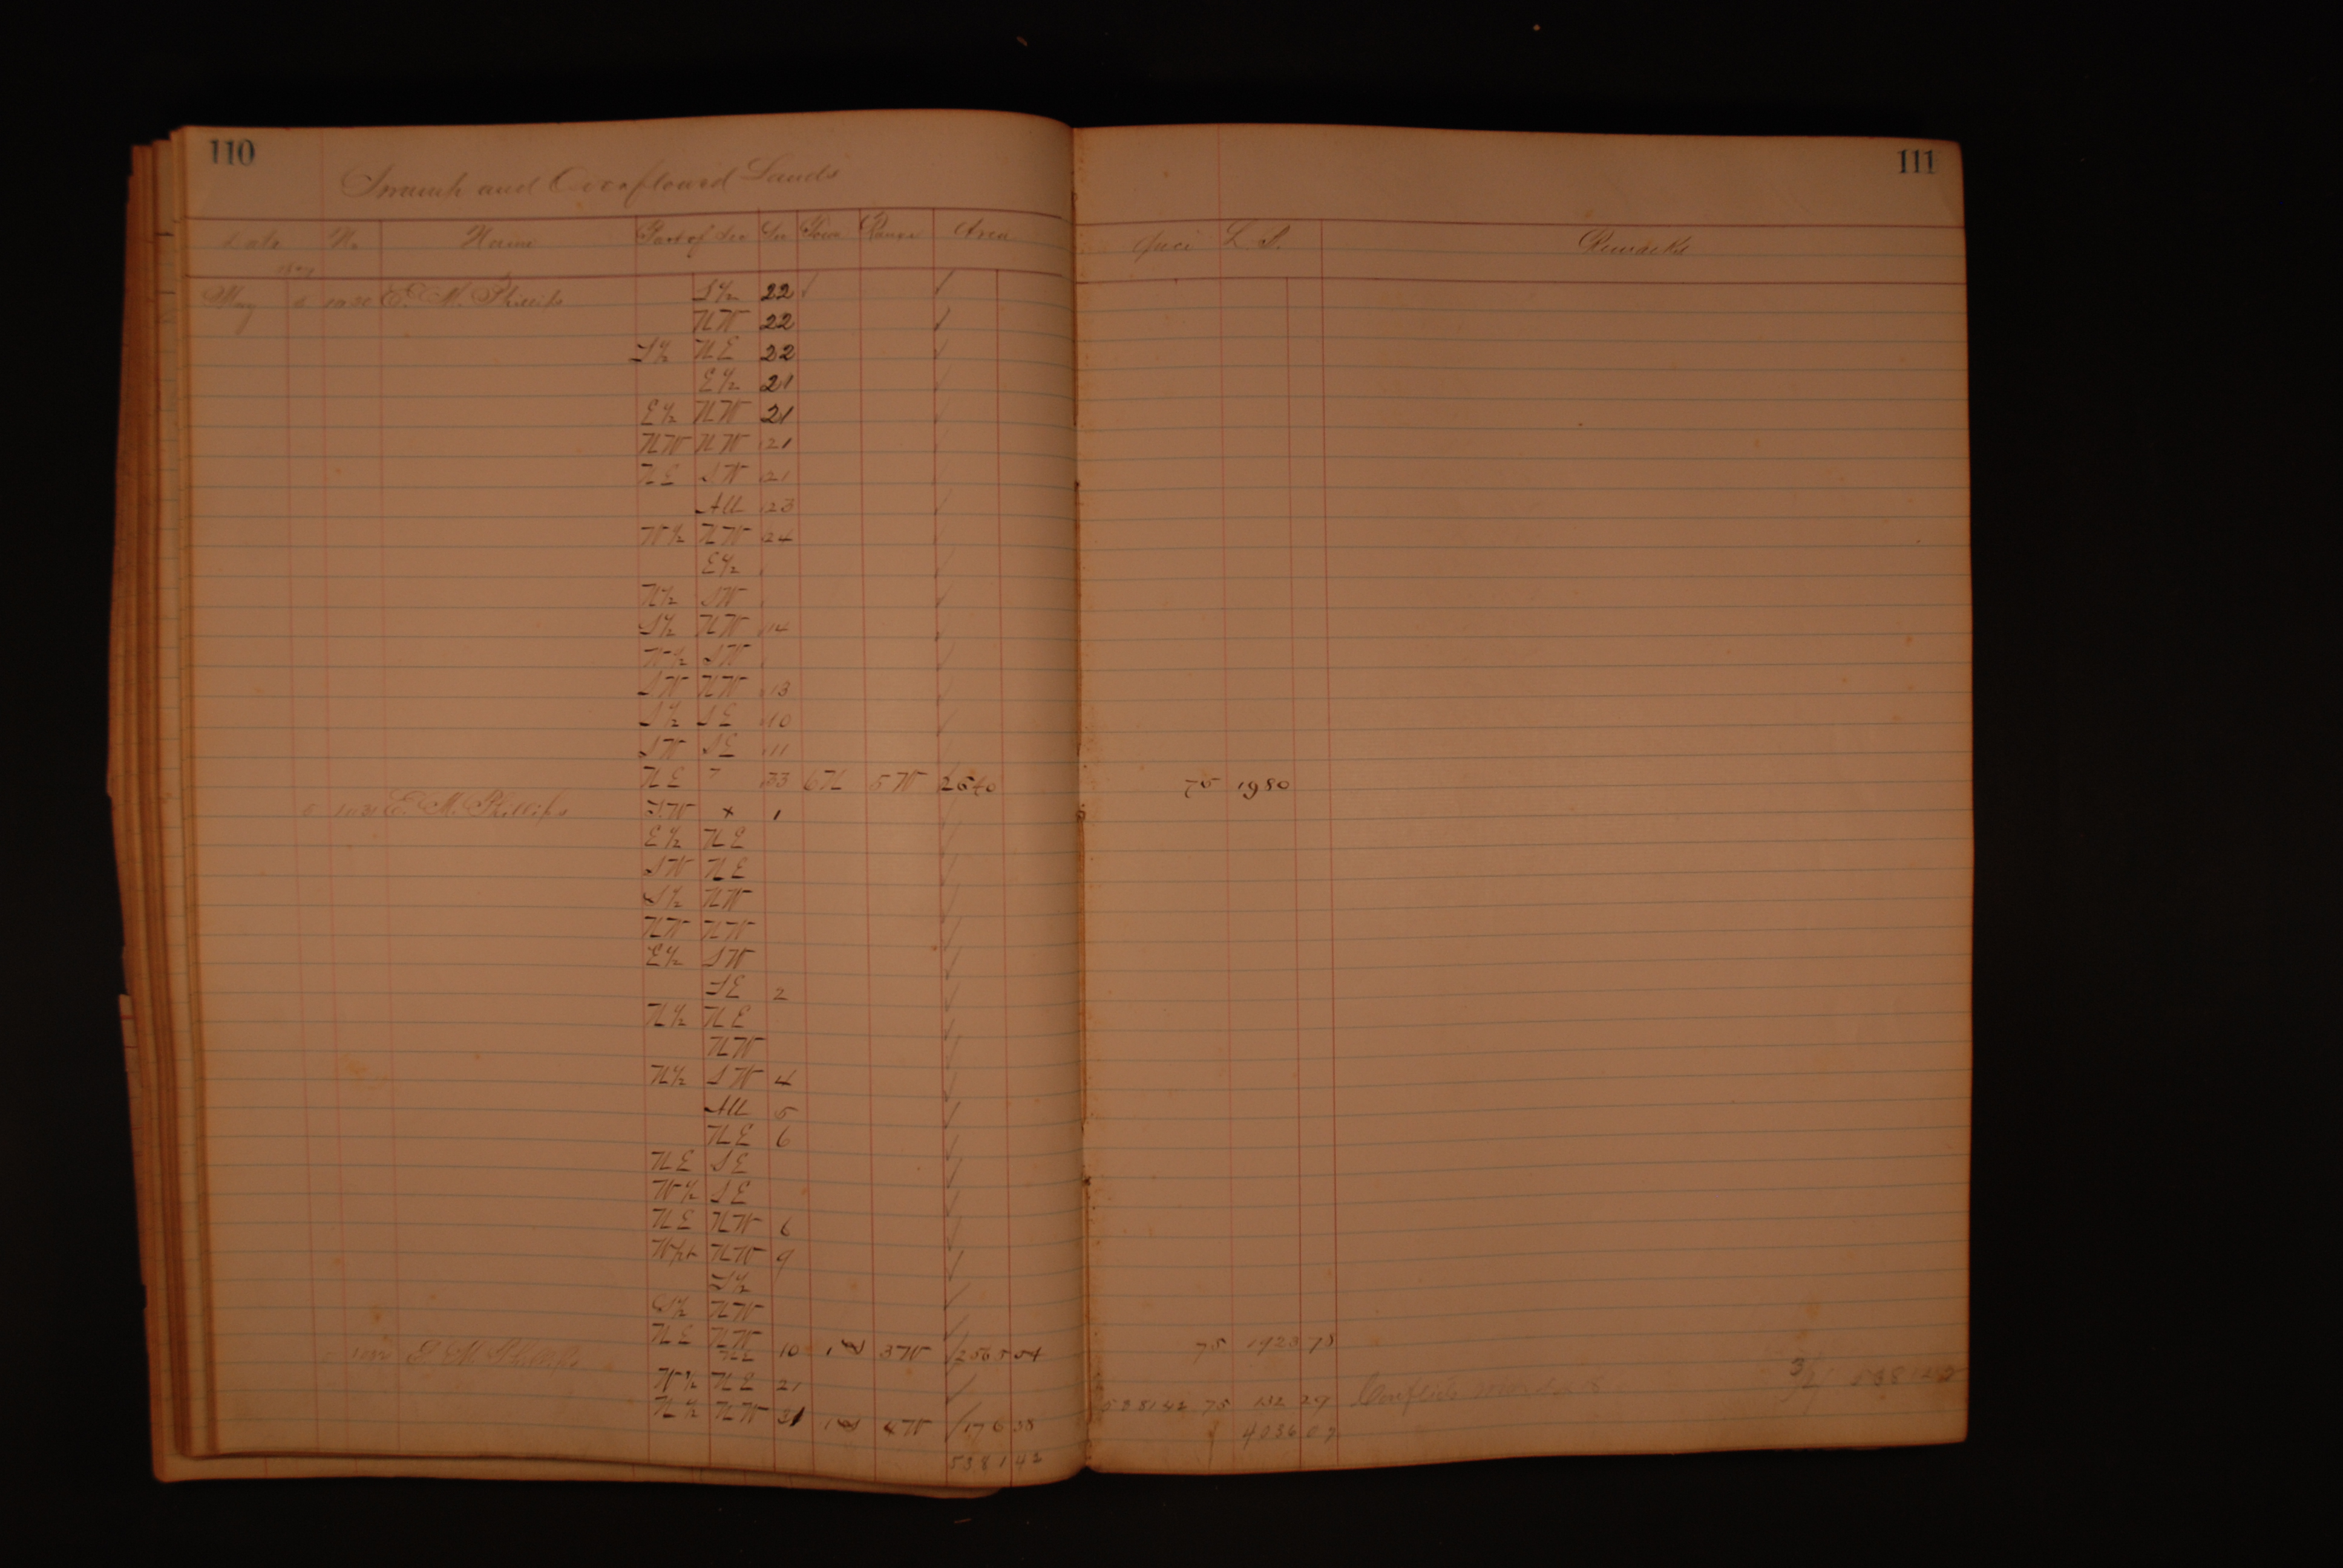 110
111
Swamp and Overflowed Lands
Date No Name Part of Sec Sec Town Range Area Price L. S. Remarks
May E. M. Phillips S½ 22 ✓ ✓
NW 22 ✓
S½ NE 22 ✓
E½ 21 ✓
E½ NW 21 ✓
NW NW 21
NE SW 21
All 23 ✓
W½ NW 24
E½ ✓
N½ SW ✓
S½ NW 14 ✓
W½ SW ✓
SW NW 13
S½ SE 10 ✓
SW SE 11
NE " 33 6N 5W 2640 75 1980
5 1031 E. M. Phillips SW x 1
E½ NE ✓
SW NE ✓
S½ NW ✓
NW NW ✓
E½ SW ✓
SE 2 ✓
N½ NE ✓
NW ✓
N½ SW 4 ✓
All 5 ✓
NE 6 ✓
NE SE ✓
W½ SE ✓
NE NW 6 ✓
NW 9 ✓
S½ ✓
S½ NW ✓
NE NW
10 3W 2565 04 75 1923 78
E. M. Phillips
W½ NE 21 ✓
N½ NW 31 4W 176 38 5381 42 75 132 29
4036 07
5381 42